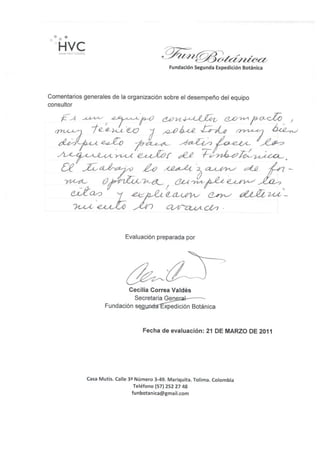 HVC
FunBotánica
Fundación Segunda Expedición Botánica
Comentarios generales de la organización sobre el desempeño del equipo
consultor
Es un equipo consultor compacto,
muy técnico y sobre todo muy bien
dispuesto para satisfacer los
requerimientos de Funbotánica.
El trabajo lo realizaron de for-
ma oportuna, cumplieron las
citas y explicaron con deteni-
miento los avances.
Evaluación preparada por
Cecilia Correa Valdés
Secretaria General
Fundación segunda Expedición Botánica
Fecha de evaluación: 21 DE MARZO DE 2011
Casa Mutis. Calle 3ª Número 3-49. Mariquita. Tolima. Colombia
Teléfono (57) 252 27 48
funbotanica@gmail.com